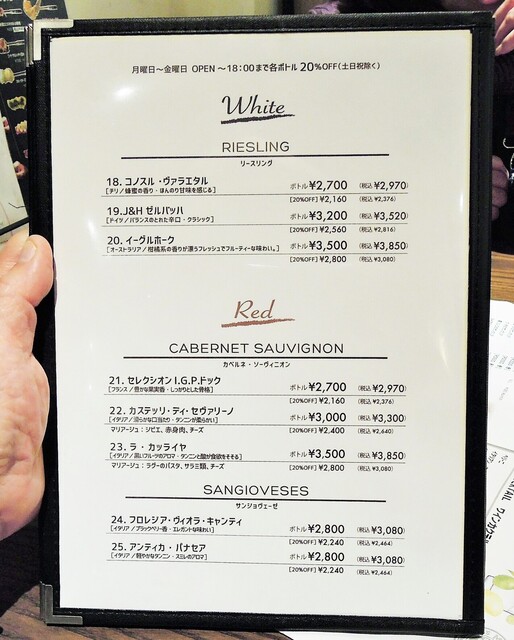 月曜日～金曜日 OPEN ～18:00まで各ボトル 20%OFF(土日祝除く)
White
RIESLING
リースリング
18. コノスル・ヴァラエタル ボトル¥2,700 (税込 ¥2,970)
[チリ/蜂蜜の香り・ほんのり甘味を感じる] [20%OFF] ¥2,160 (税込 ¥2,376)
19.J&H ゼルバッハ ボトル¥3,200 (税込 ¥3,520)
[ドイツ/バランスのとれた辛口・クラシック] [20%OFF] ¥2,560 (税込 ¥2,816)
20. イーグルホーク ボトル¥3,500 (税込 ¥3,850)
[オーストラリア/柑橘系の香りが漂うフレッシュでフルーティーな味わい。] [20%OFF] ¥2,800 (税込 ¥3,080)
Red
CABERNET SAUVIGNON
カベルネ・ソーヴィニオン
21. セレクシオン I.G.P.ドック ボトル¥2,700 (税込 ¥2,970)
[フランス/豊かな果実香・しっかりとした骨格] [20%OFF] ¥2,160 (税込 ¥2,376)
22. カステッリ・ディ・セヴァリーノ ボトル¥3,000 (税込 ¥3,300)
[イタリア/滑らかな口当たり・タンニンが柔らかい] [20%OFF] ¥2,400 (税込 ¥2,640)
マリアージュ:ジビエ、赤身肉、チーズ
23. ラ・カッライヤ ボトル¥3,500 (税込 ¥3,850)
[イタリア/黒いフルーツのアロマ・タンニンと酸が食欲をそそる] [20%OFF] ¥2,800 (税込 ¥3,080)
マリアージュ:ラグーのパスタ、サラミ類、チーズ
SANGIOVESES
サンジョヴェーゼ
24. フロレジア・ヴィオラ・キャンティ ボトル¥2,800 (税込 ¥3,080)
[イタリア/ブラックベリー香・エレガントな味わい] [20%OFF] ¥2,240 (税込 ¥2,464)
25. アンティカ・パナセア ボトル¥2,800 (税込 ¥3,080)
[イタリア/軽やかなタンニン・スミレのアロマ] [20%OFF] ¥2,240 (税込 ¥2,464)